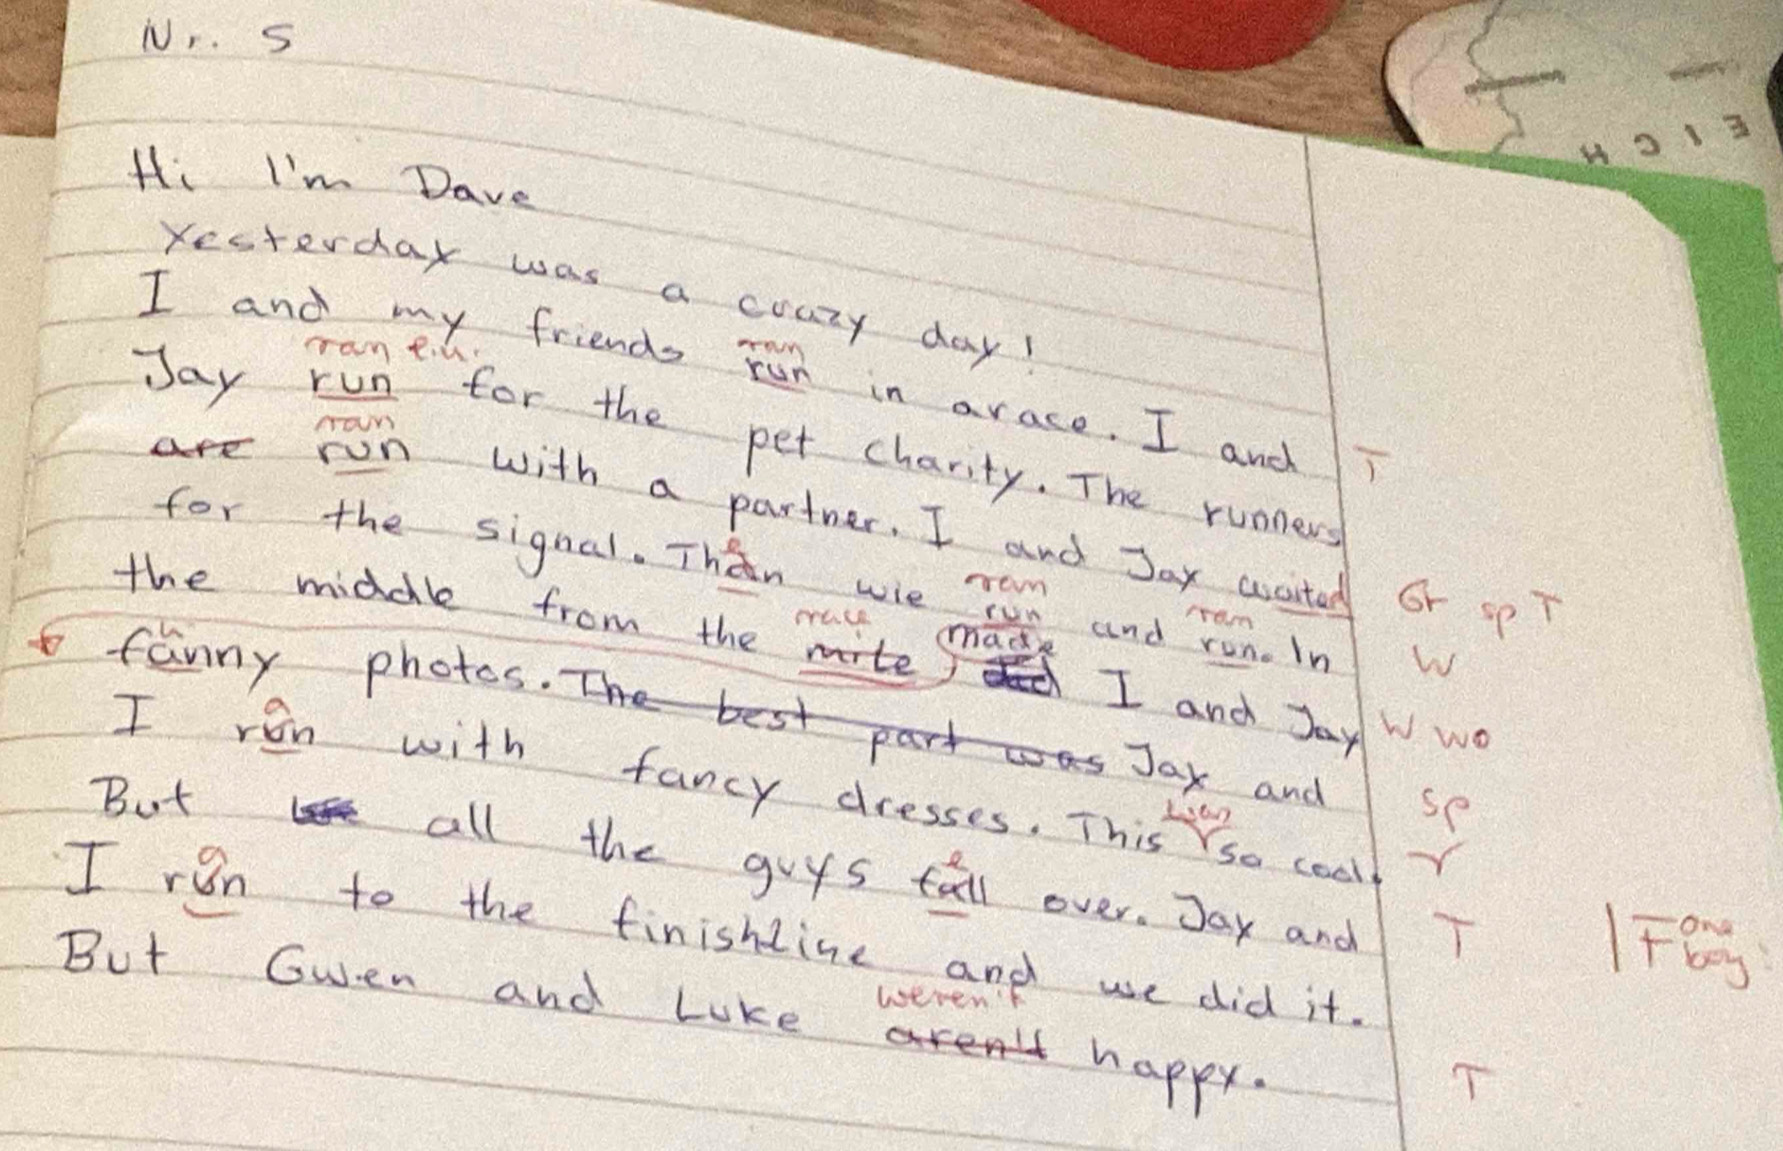 Nr. 5
EICH
Hi I'm Dave
Yesterday was a crazy day!
I and my friends run in a race. I and
ran e.u. ran
Jay run for the pet charity. The runners
T
ran
are run with a partner. I and Jay waited
for the signal. Than wie run and run. In
e ran ran
Gr sp T
the middle from the mile made I and Jay
race
W
fanny photos. The best part was Jay and
u
W wo
I run with fancy dresses. This so cool.
a was
sp
But all the guys fall over. Jay and
e
I run to the finishline and we did it.
a
T
But Gwen and Luke aren't happy.
weren't
T
one
boy